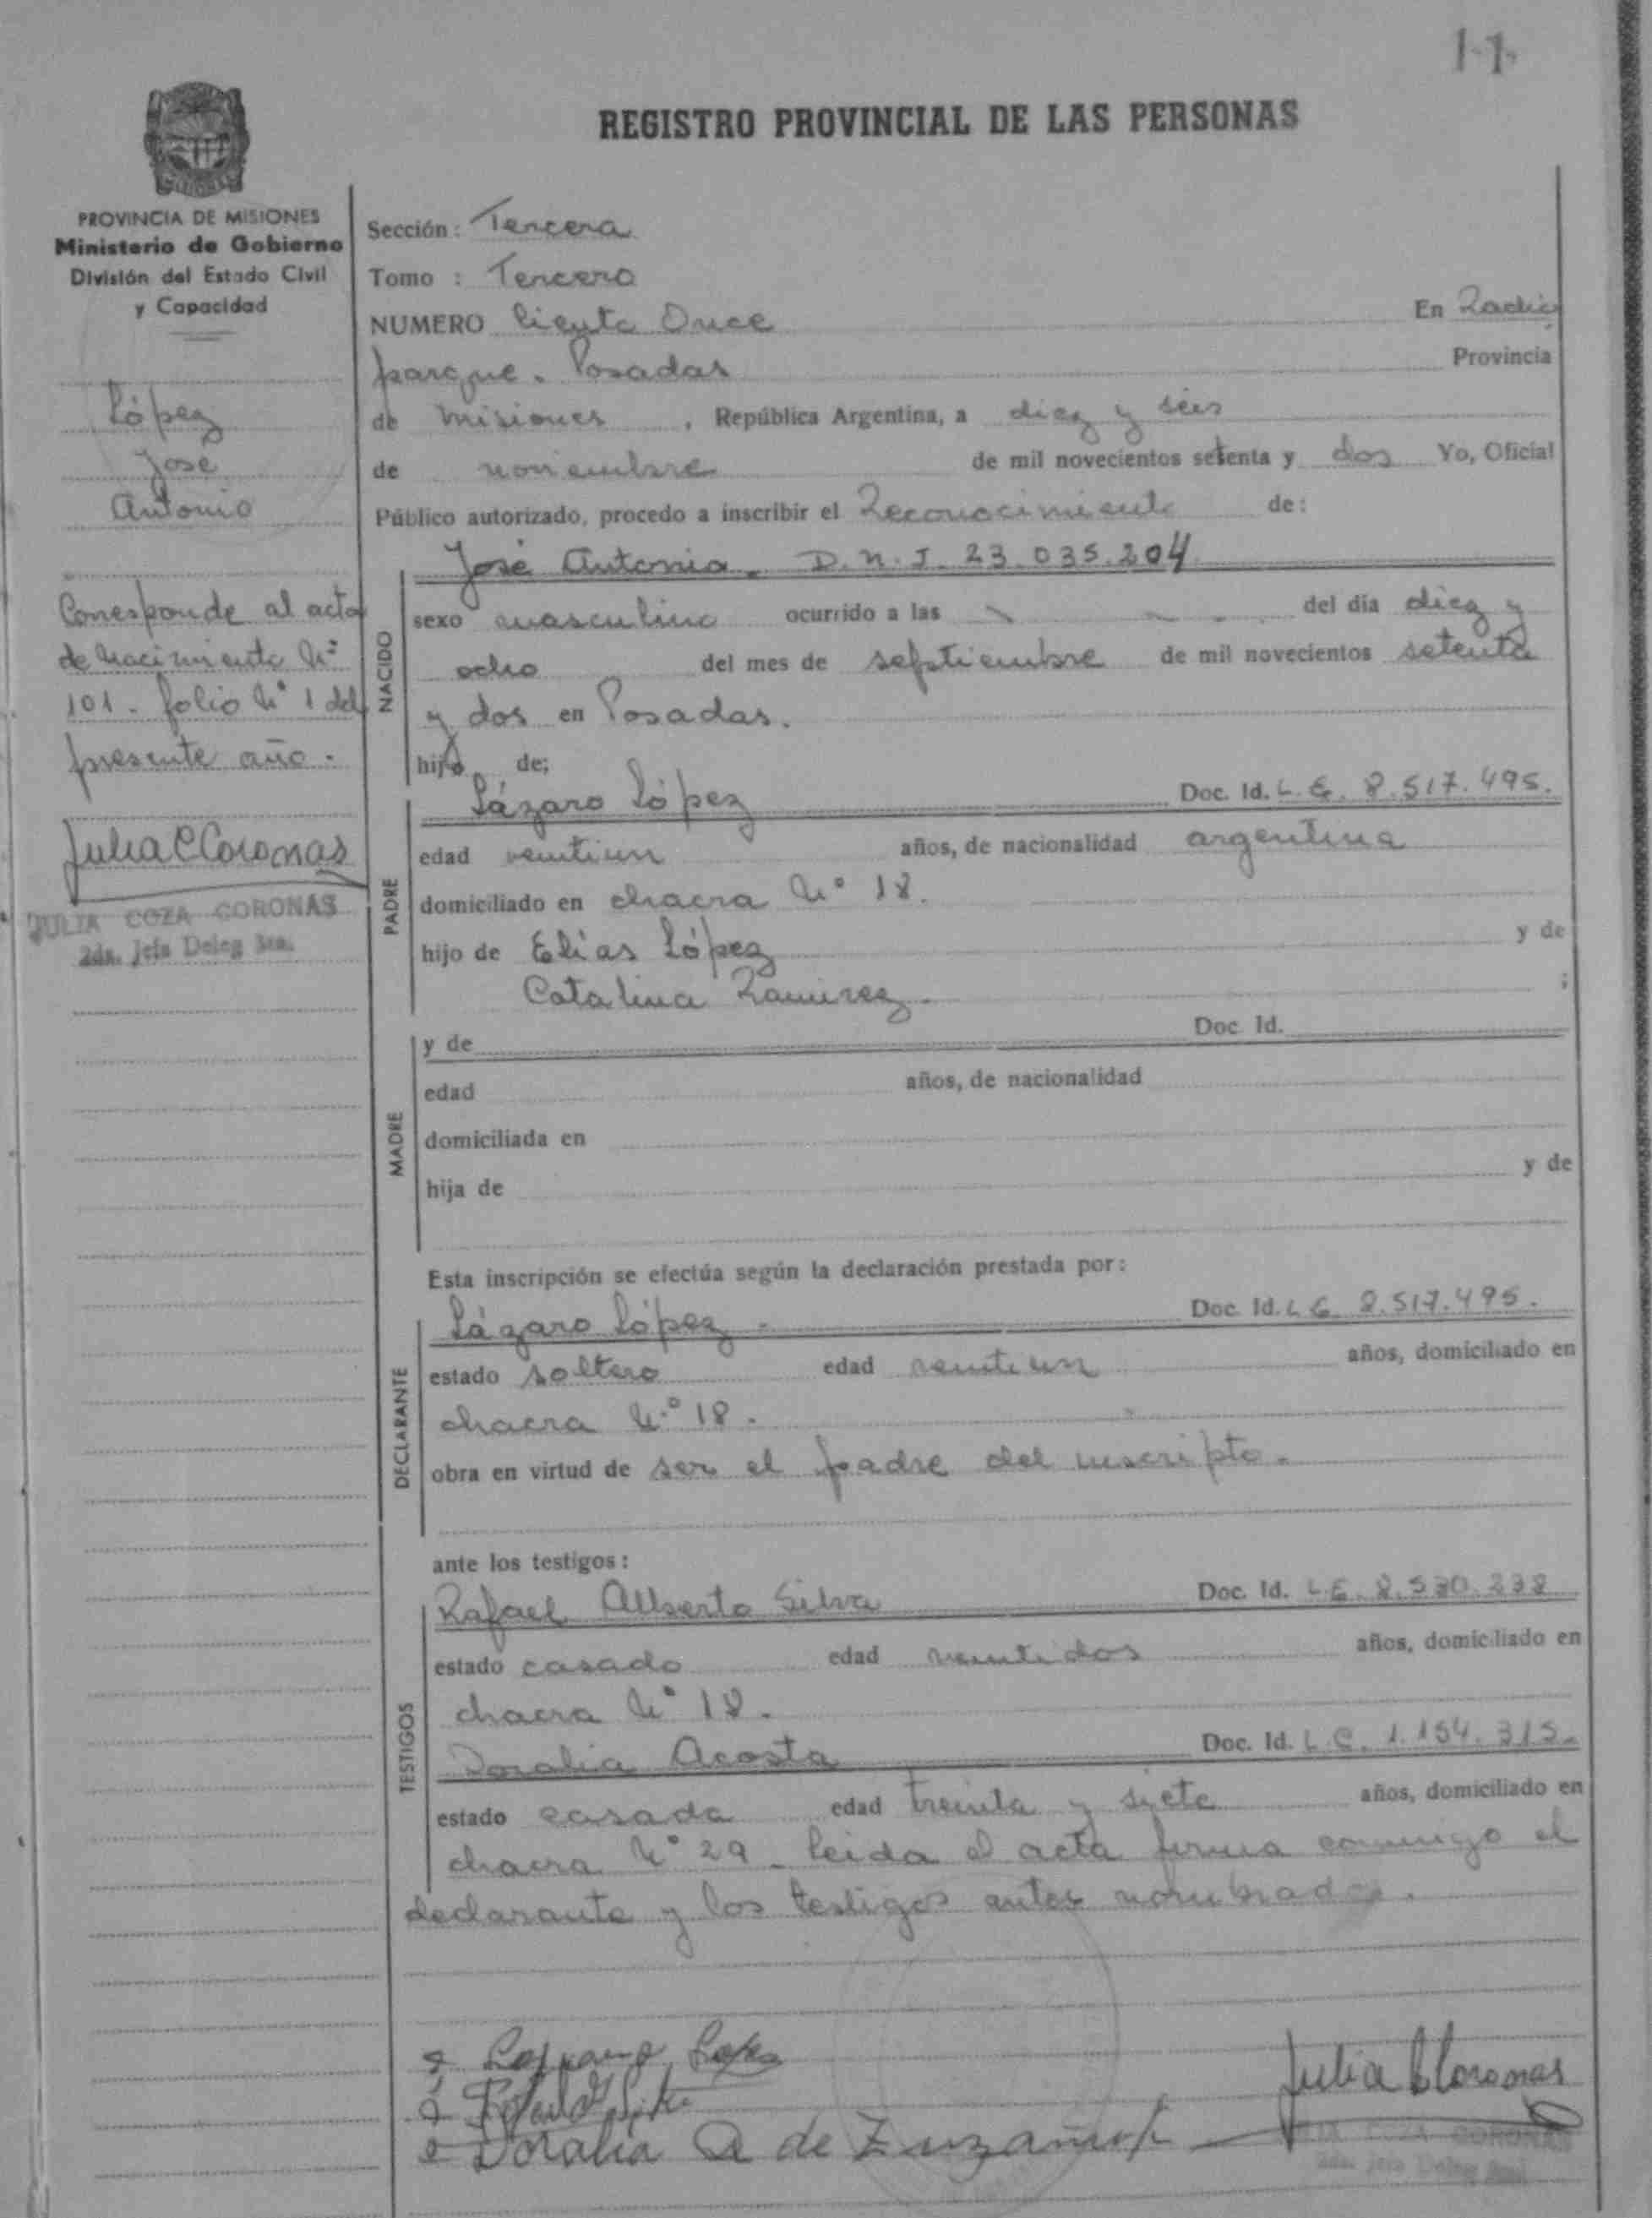 11
REGISTRO PROVINCIAL DE LAS PERSONAS
PROVINCIA DE MISIONES
Ministerio de Gobierno
División del Estado Civil
y Capacidad
López
José
Antonio
Corresponde al acta
de nacimiento Nº
101 - folio Nº 1 del
presente año.
Julia C Coronas
JULIA COZA CORONAS
2da. Jefa Deleg 3ra.
Sección: Tercera
Tomo : Tercero
NUMERO Ciento Once En Radio
parque. Posadas Provincia
de Misiones, República Argentina, a diez y seis
de noviembre de mil novecientos setenta y dos Yo, Oficial
Público autorizado, procedo a inscribir el Reconocimiento de:
NACIDO
José Antonio. D.N.I. 23.035.204
sexo masculino ocurrido a las del día diez y
ocho del mes de septiembre de mil novecientos setenta
y dos en Posadas.
hijo de;
PADRE
Lázaro López Doc. Id. L.E. 8.517.495.
edad veintiun años, de nacionalidad argentina
domiciliado en chacra Nº 18.
hijo de Elias López y de
Catalina Ramirez. ;
MADRE
y de Doc. Id.
edad años, de nacionalidad
domiciliada en
hija de y de
Esta inscripción se efectúa según la declaración prestada por:
DECLARANTE
Lázaro López. Doc. Id. L.E. 8.517.495.
estado soltero edad veintiun años, domiciliado en
chacra Nº 18.
obra en virtud de ser el padre del inscripto.
ante los testigos:
TESTIGOS
Rafael Alberto Silva Doc. Id. L.E. 8.530.238
estado casado edad veintidos años, domiciliado en
chacra Nº 18.
Doralia Acosta Doc. Id. L.C. 1.154.315.
estado casada edad treinta y siete años, domiciliado en
chacra Nº 29. Leida el acta firma conmigo el
declarante y los testigos antes nombrados.
Lopez
Julia C Coronas
Doralia A de
CORONAS
2da. Jefa Deleg 3ra.